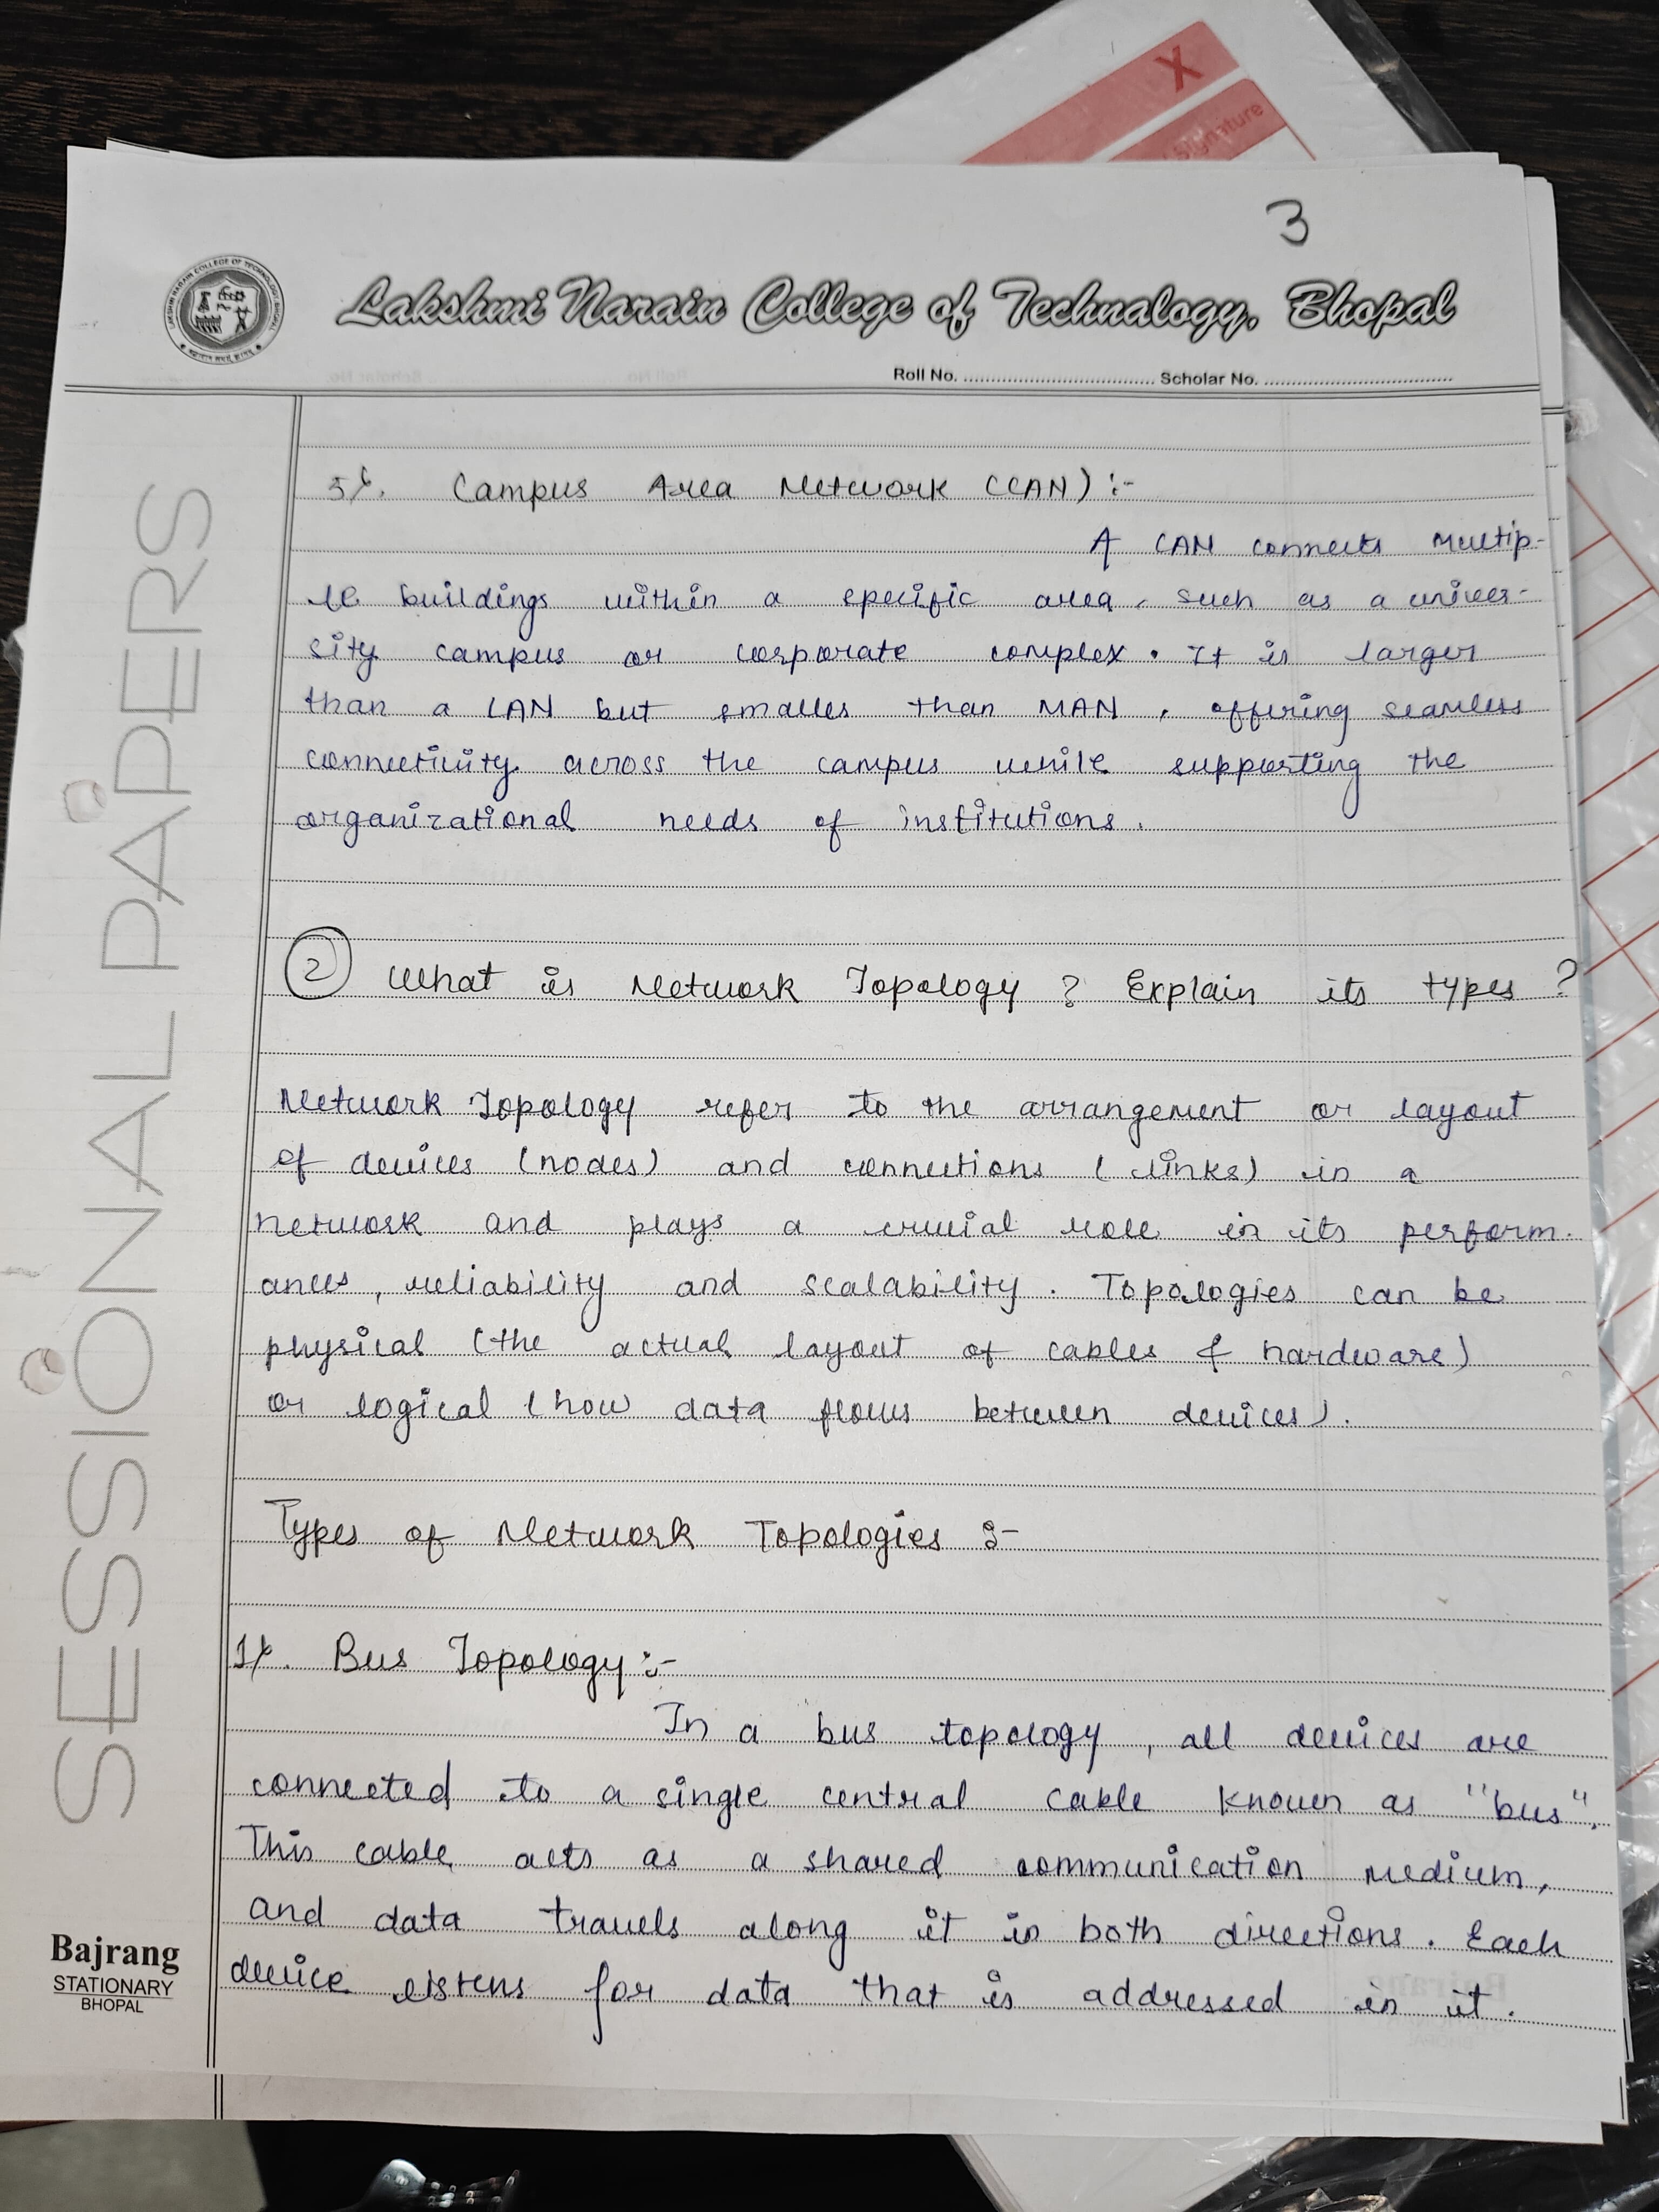 X
Signature
3
Lakshmi Narain College of Technalogy, Bhopal
Roll No. ........................ Scholar No. ........................
SESSIONAL PAPERS
5). Campus Area Network (CAN) :-
A CAN connects multip-
le buildings within a specific area, such as a univer-
sity campus or corporate complex. It is larger
than a LAN but smaller than MAN, offering seamless
connectivity across the campus while supporting the
organizational needs of institutions.
2 What is Network Topology ? Explain its types ?
Network Topology refer to the arrangement or layout
of devices (nodes) and connections (links) in a
network and plays a crucial role in its perform-
ances, reliability and scalability. Topologies can be
physical (the actual layout of cables & hardware)
or logical (how data flows between devices).
Types of Network Topologies :-
1). Bus Topology :-
In a bus topology, all devices are
connected to a single central cable known as "bus".
This cable acts as a shared communication medium,
and data travels along it in both directions. Each
device listens for data that is addressed in it.
Bajrang
STATIONARY
BHOPAL